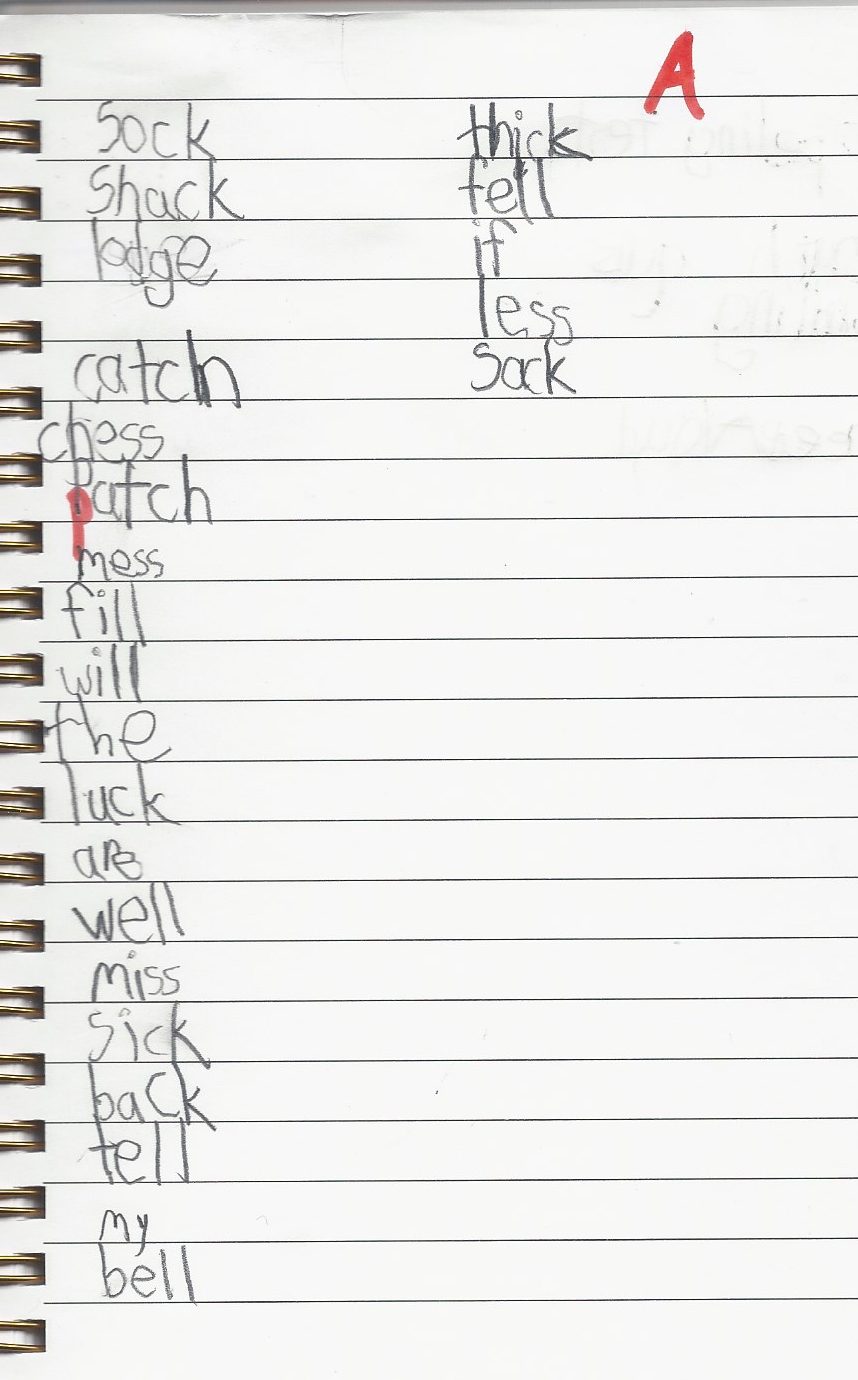 A
Sock
Shack
lodge
catch
chess
patch
mess
fill
will
the
luck
are
well
miss
sick
back
tell
my
bell
thick
fell
if
less
Sack